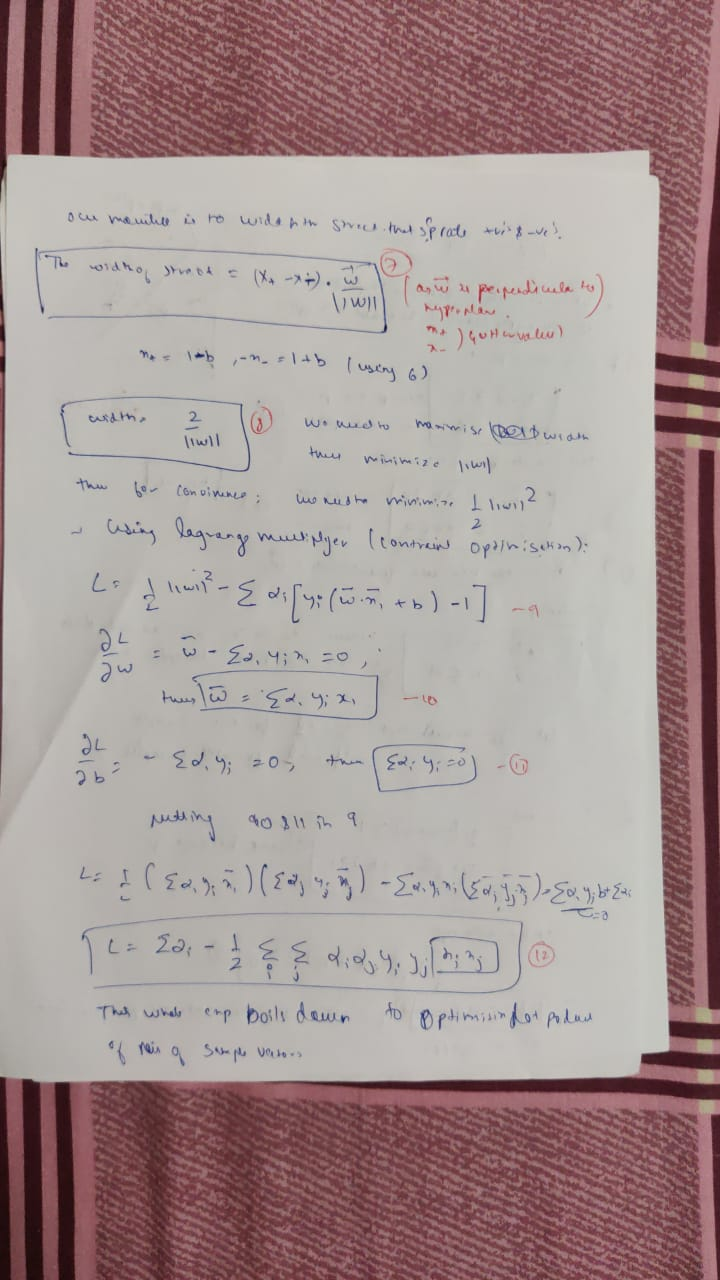 our is to wide the street that sprate +ve's & -ve's.
The width of street = (x₊ - x₋) · w⃗ / ||w|| ⑦
(as w⃗ is perpendicula to
hyperplan.
x₊
x₋ ) gutter value)
x₊ = 1-b, -x₋ = 1+b (using 6)
width = 2 / ||w|| ⑧
we need to maximise width
thus minimize ||w||
thus for convinence; we need to minimize 1/2 ||w||²
Using lagrange multiplyer (contraint optimisation):
L = 1/2 ||w||² - Σ αᵢ [yᵢ (w̄·x̄ᵢ + b) - 1] - 9
∂L/∂w = w̄ - Σαᵢ yᵢ xᵢ = 0,
thus w̄ = Σαᵢ yᵢ xᵢ - 10
∂L/∂b = - Σαᵢ yᵢ = 0, thus Σαᵢ yᵢ = 0 - ⑪
putting 10 & 11 in 9
L = 1/2 (Σαᵢ yᵢ x̄ᵢ) (Σαⱼ yⱼ x̄ⱼ) - Σαᵢ yᵢ xᵢ (Σαⱼ yⱼ x̄ⱼ) - Σαᵢ yᵢ b + Σαᵢ
= 0
L = Σαᵢ - 1/2 Σᵢ Σⱼ αᵢ αⱼ yᵢ yⱼ xᵢ xⱼ ⑫
This whole exp boils down to optimising dot
of pair of sample vectors